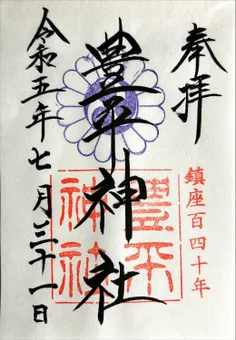 奉拝
鎮座百四十年
豊平神社
豊平神社
令和五年七月三十一日